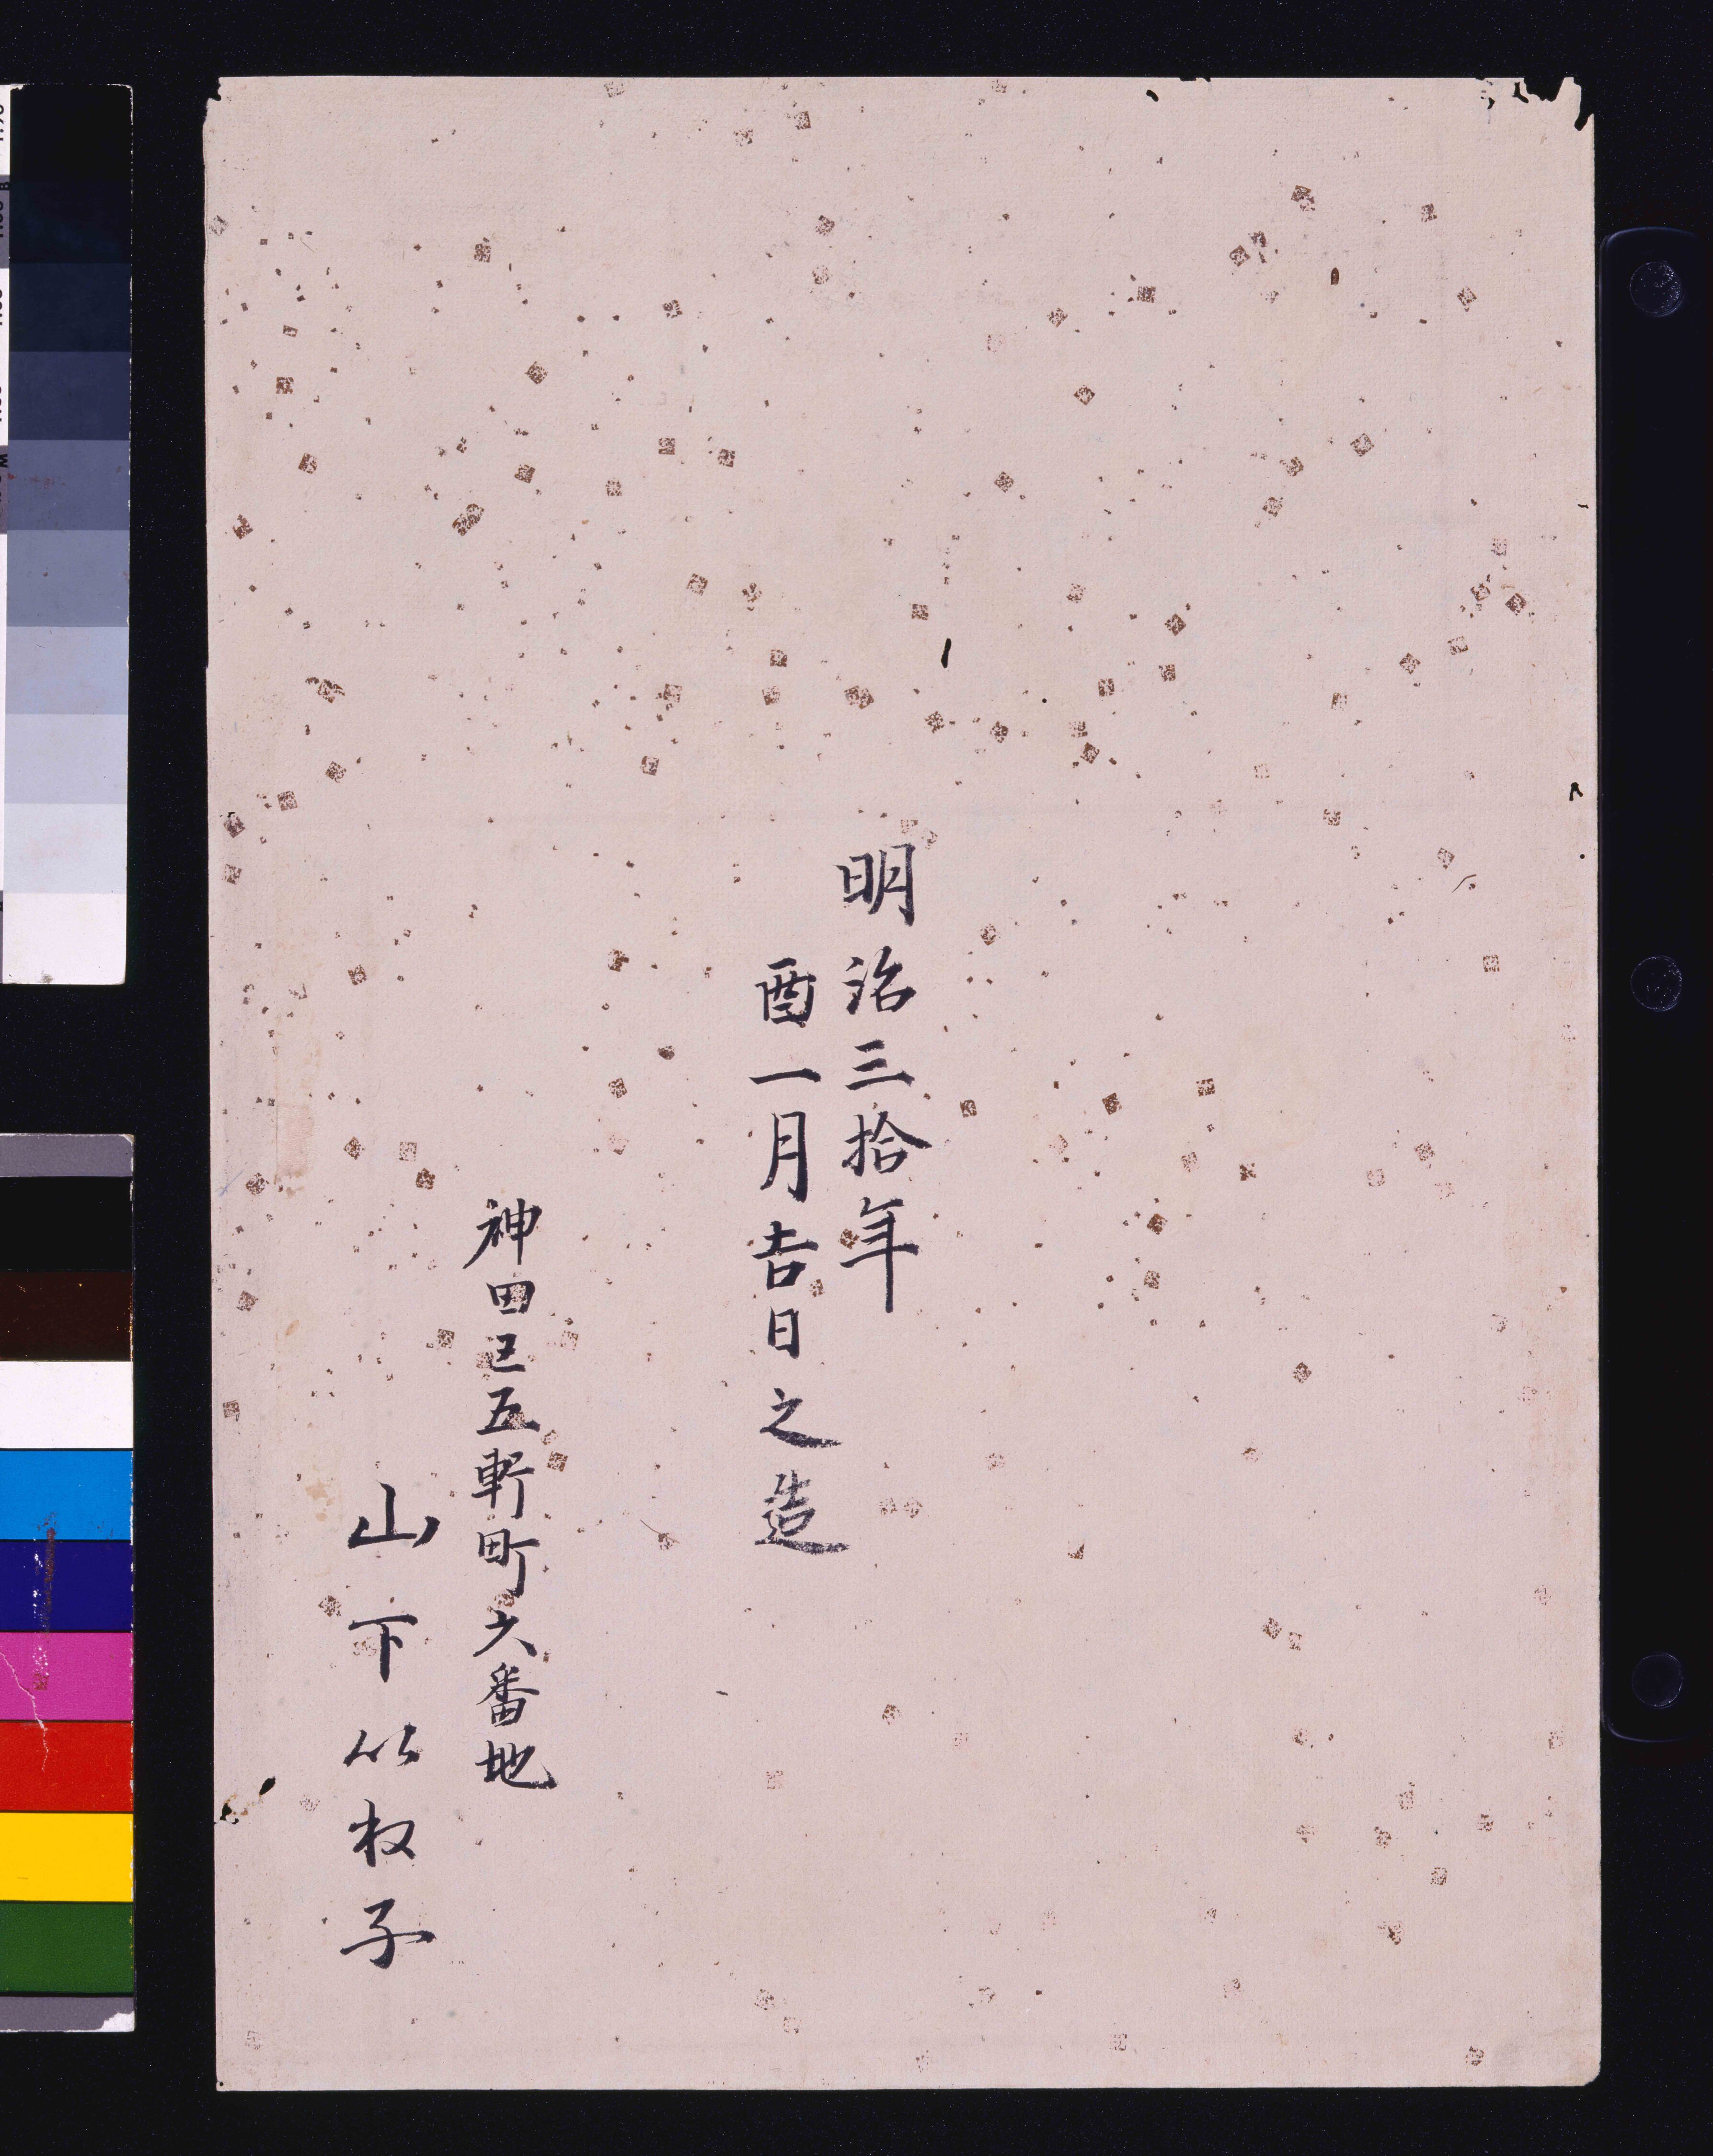 明治三拾年
酉一月吉日之造
神田区五軒町六番地
山下
子